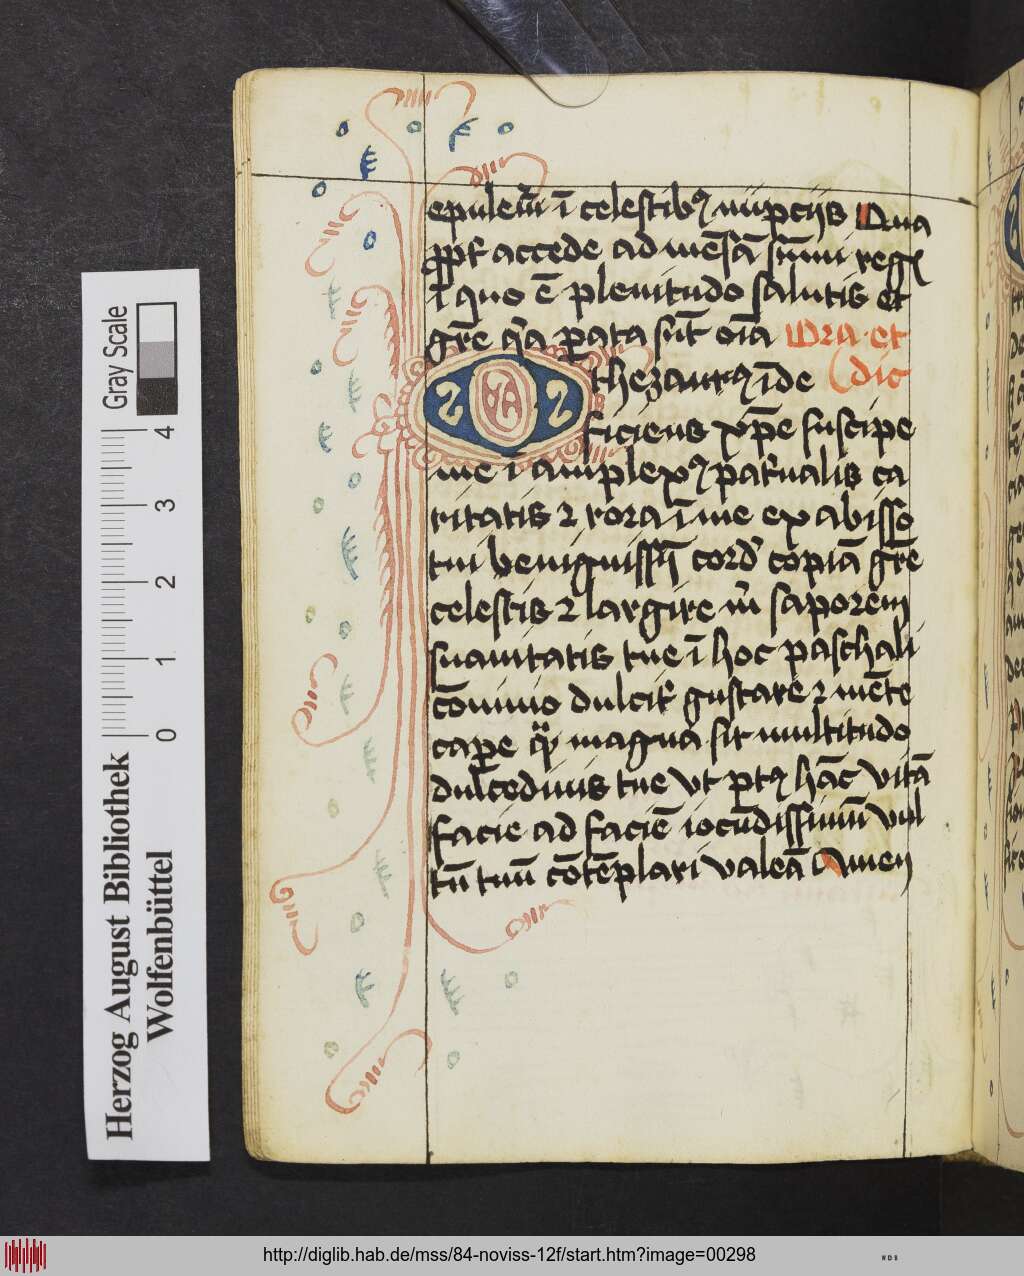 epulem̄ ī celestibꝰ nūpciis Qua
ꝓpt̄ accede ad mēsā sūmi regꝭ
ī quo ē plenitudo salutis et
gr̄e q̄a ꝑata sūt oīa Ora et
O thezaurꝰ īde dic
ficiens xp̄e suscipe
me ī amplexꝰ pat̄nalis ca
ritatis ⁊ rora ī me ex abisso
tui benigniss̄ī cordꝭ copiā gr̄e
celestis ⁊ largire m̄ saporem
suauitatis tue ī hoc paschali
cōuiuio dulcit̄ gustare ⁊ mēte
capꝑe magna sit multitudo
dulcedinis tue vt hāc vitā
facie ad faciē iocūdissimū vul
tū tuū cōtēplari valeā Amen
Herzog August Bibliothek
Wolfenbüttel
Gray Scale
0 1 2 3 4
http://diglib.hab.de/mss/84-noviss-12f/start.htm?image=00298